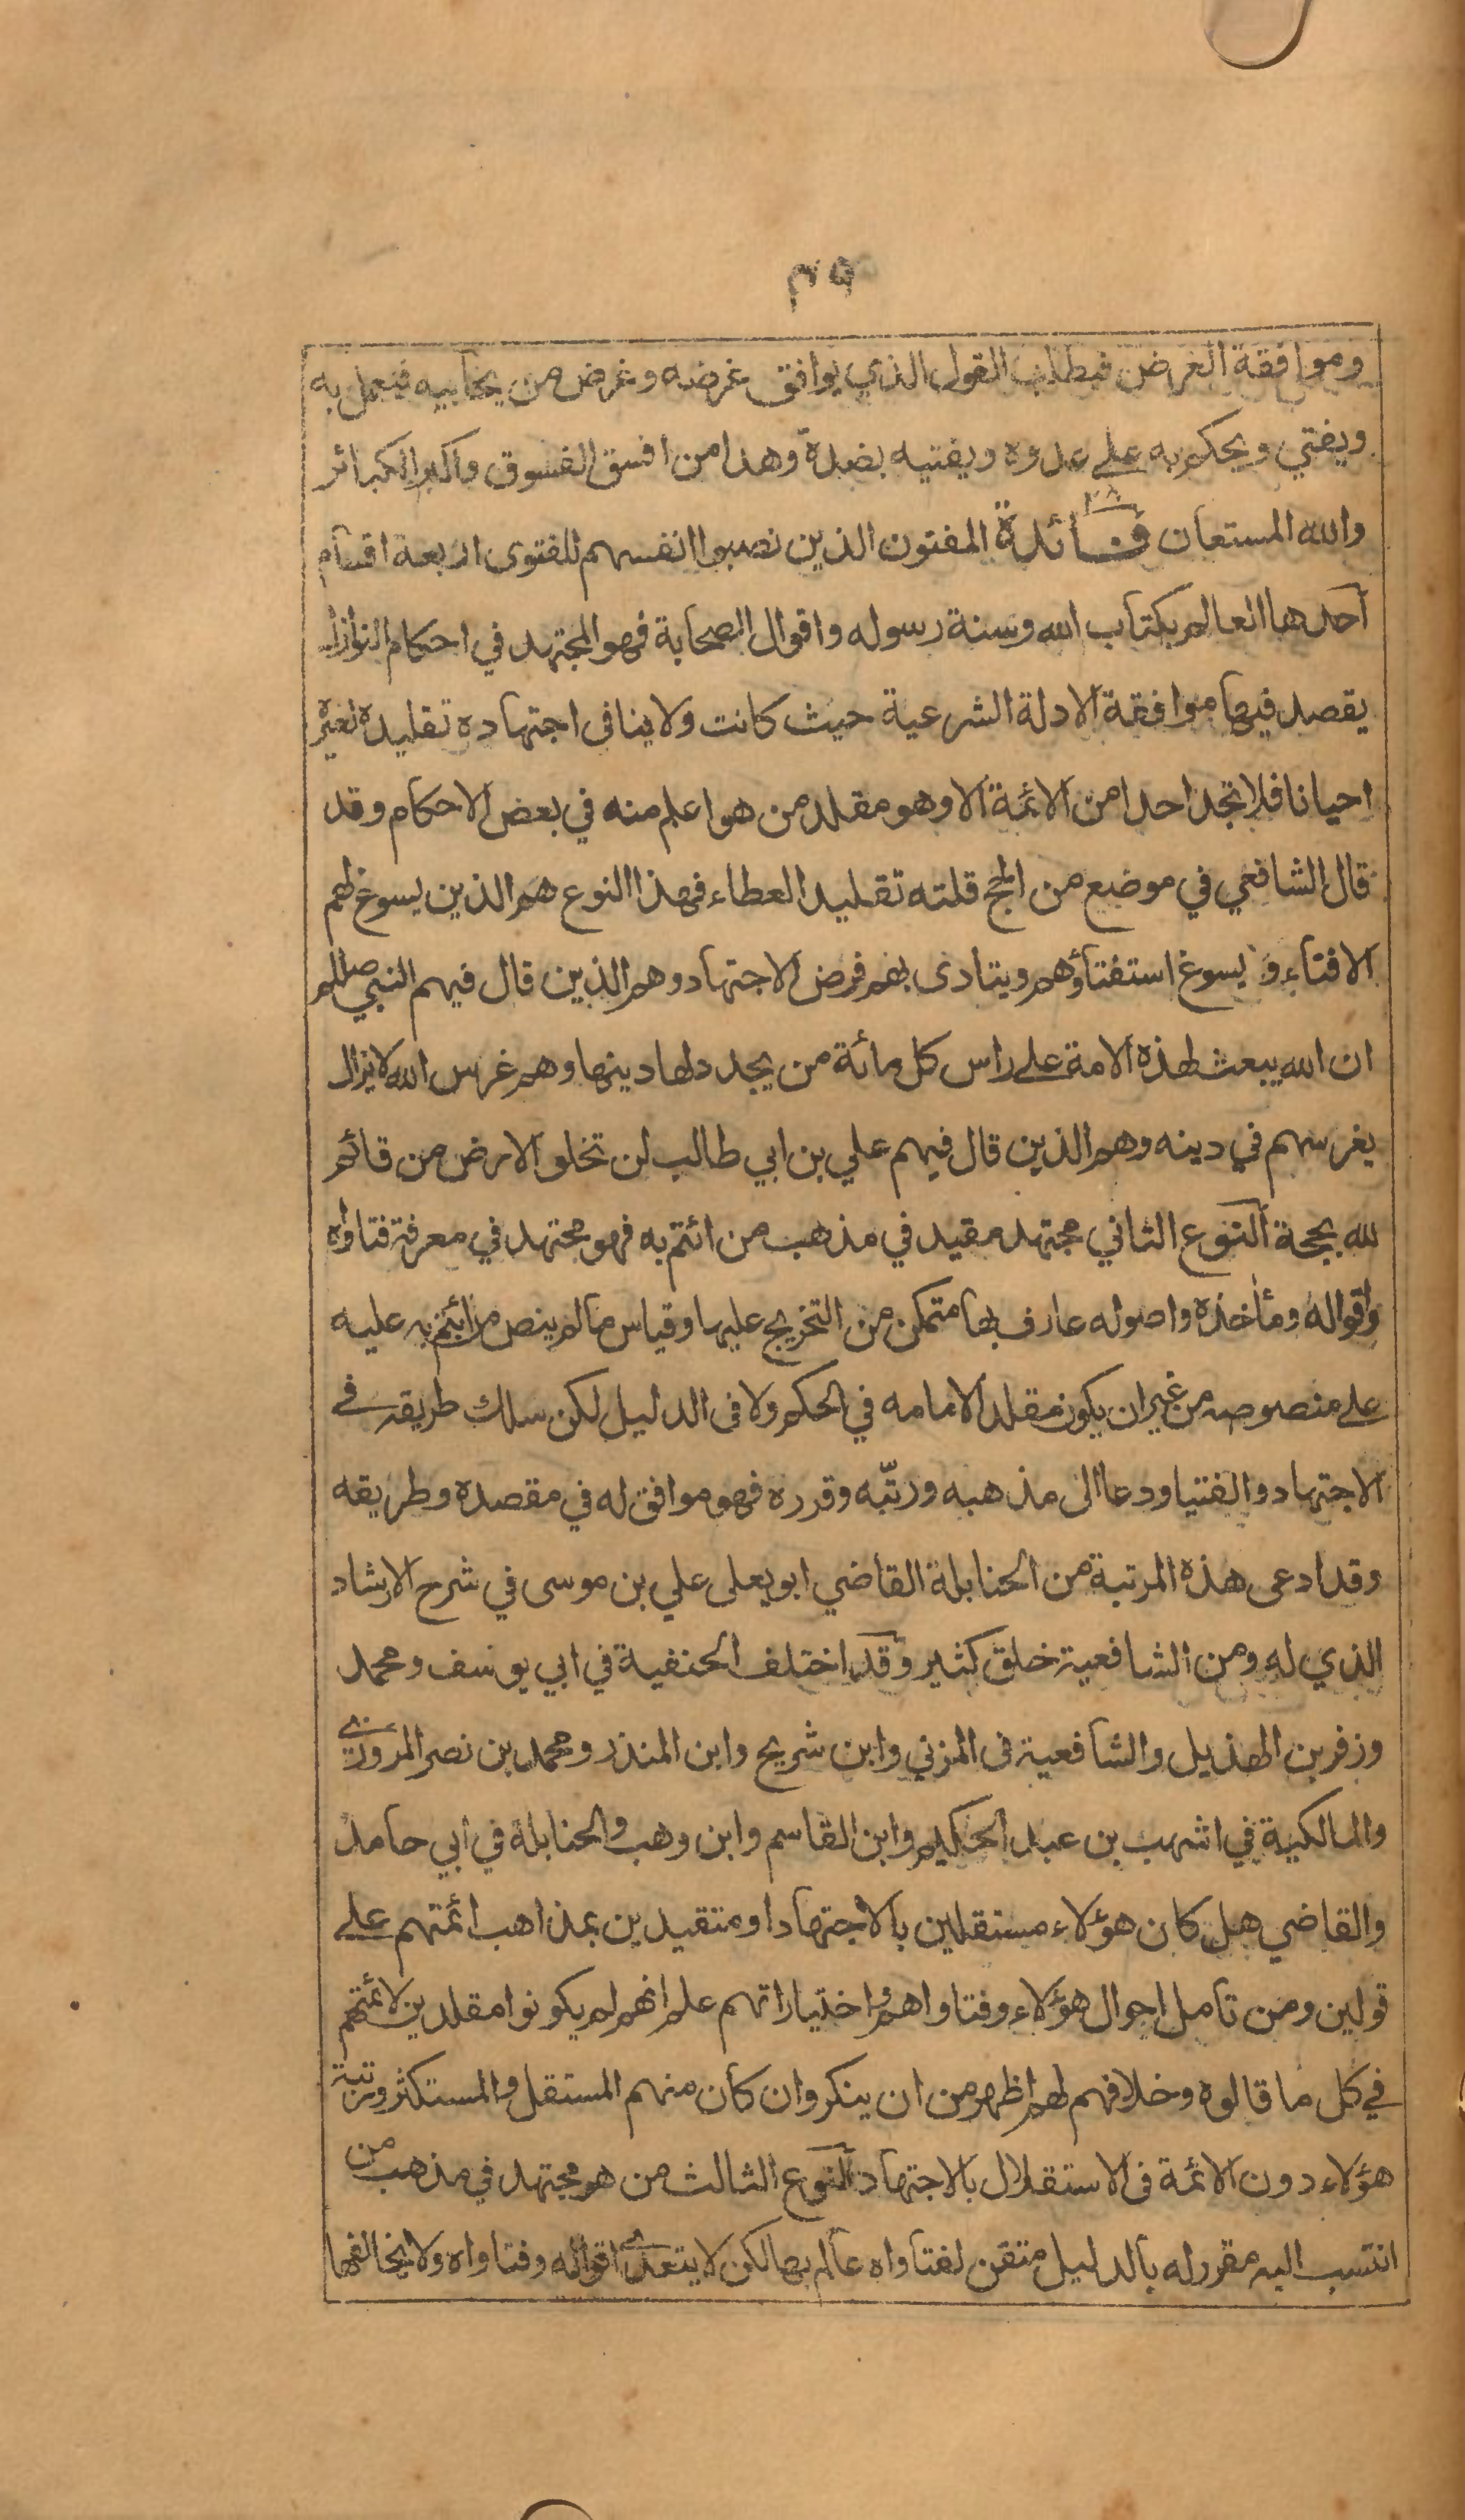 ٥٣
وموافقة الغرض فيطلب القول الذي يوافق غرضه وغرض من يحابيه فيعمل به
ويفتي ويحكم به على عدوه ويفتيه بضده وهذا من افسق الفسوق واكبر الكبائر
والله المستعان فائدة ٢٨ المفتون الذين نصبوا انفسهم للفتوى اربعة اقسام
احدها العالم بكتاب الله وسنة رسوله واقوال الصحابة فهو المجتهد في احكام النوازل
يقصد فيها موافقة الادلة الشرعية حيث كانت ولا ينافى اجتهاده تقليده لغيره
احيانا فلا تجد احدا من الائمة الا وهو مقلد من هو اعلم منه في بعض الاحكام وقد
قال الشافعي في موضع من الحج قلته تقليدا لعطاء فهذا النوع هم الذين يسوغ لهم
الافتاء ويسوغ استفتاؤهم ويتادى بهم فرض الاجتهاد وهم الذين قال فيهم النبي صللم
ان الله يبعث لهذه الامة على راس كل مائة من يجدد لها دينها وهم غرس الله لا يزال
يغرسهم في دينه وهم الذين قال فيهم علي بن ابي طالب لن تخلو الارض من قائم
لله بحجة النوع الثاني مجتهد مقيد في مذهب من ائتم به فهو مجتهد في معرفة فتاواه
واقواله ومأخذه واصوله عارف بها متمكن من التخريج عليها وقياس مالم ينص من ائتم به عليه
على منصوصه من غير ان يكون مقلدا لامامه في الحكم ولا فى الدليل لكن سلك طريقه في
الاجتهاد والفتيا ودعا الى مذهبه ورتّبه وقرره فهو موافق له في مقصده وطريقه
وقد ادعى هذه المرتبة من الحنابلة القاضي ابو يعلى علي بن موسى في شرح الارشاد
الذي له ومن الشافعية خلق كثير وقد اختلف الحنفية في ابي يوسف ومحمد
وزفر بن الهذيل والشافعية فى المزني وابن شريح وابن المنذر ومحمد بن نصر المروزي
والمالكية في اشهب بن عبد الحكيم وابن القاسم وابن وهب والحنابلة في ابي حامد
والقاضي هل كان هؤلاء مستقلين بالاجتهاد او متقيدين بمذاهب ائمتهم على
قولين ومن تامل احوال هؤلاء وفتاواهم واختياراتهم علم انهم لم يكونوا مقلدين لائمتهم
في كل ما قالوه وخلافهم لهم اظهر من ان ينكر وان كان منهم المستقل والمستكثر ورتبة
هؤلاء دون الائمة فى الاستقلال بالاجتهاد النوع الثالث من هو مجتهد في مذهب من
انتسب اليه مقرر له بالدليل متقن لفتاواه عالم بها لكن لا يتعدى اقواله وفتاواه ولا يخالفها